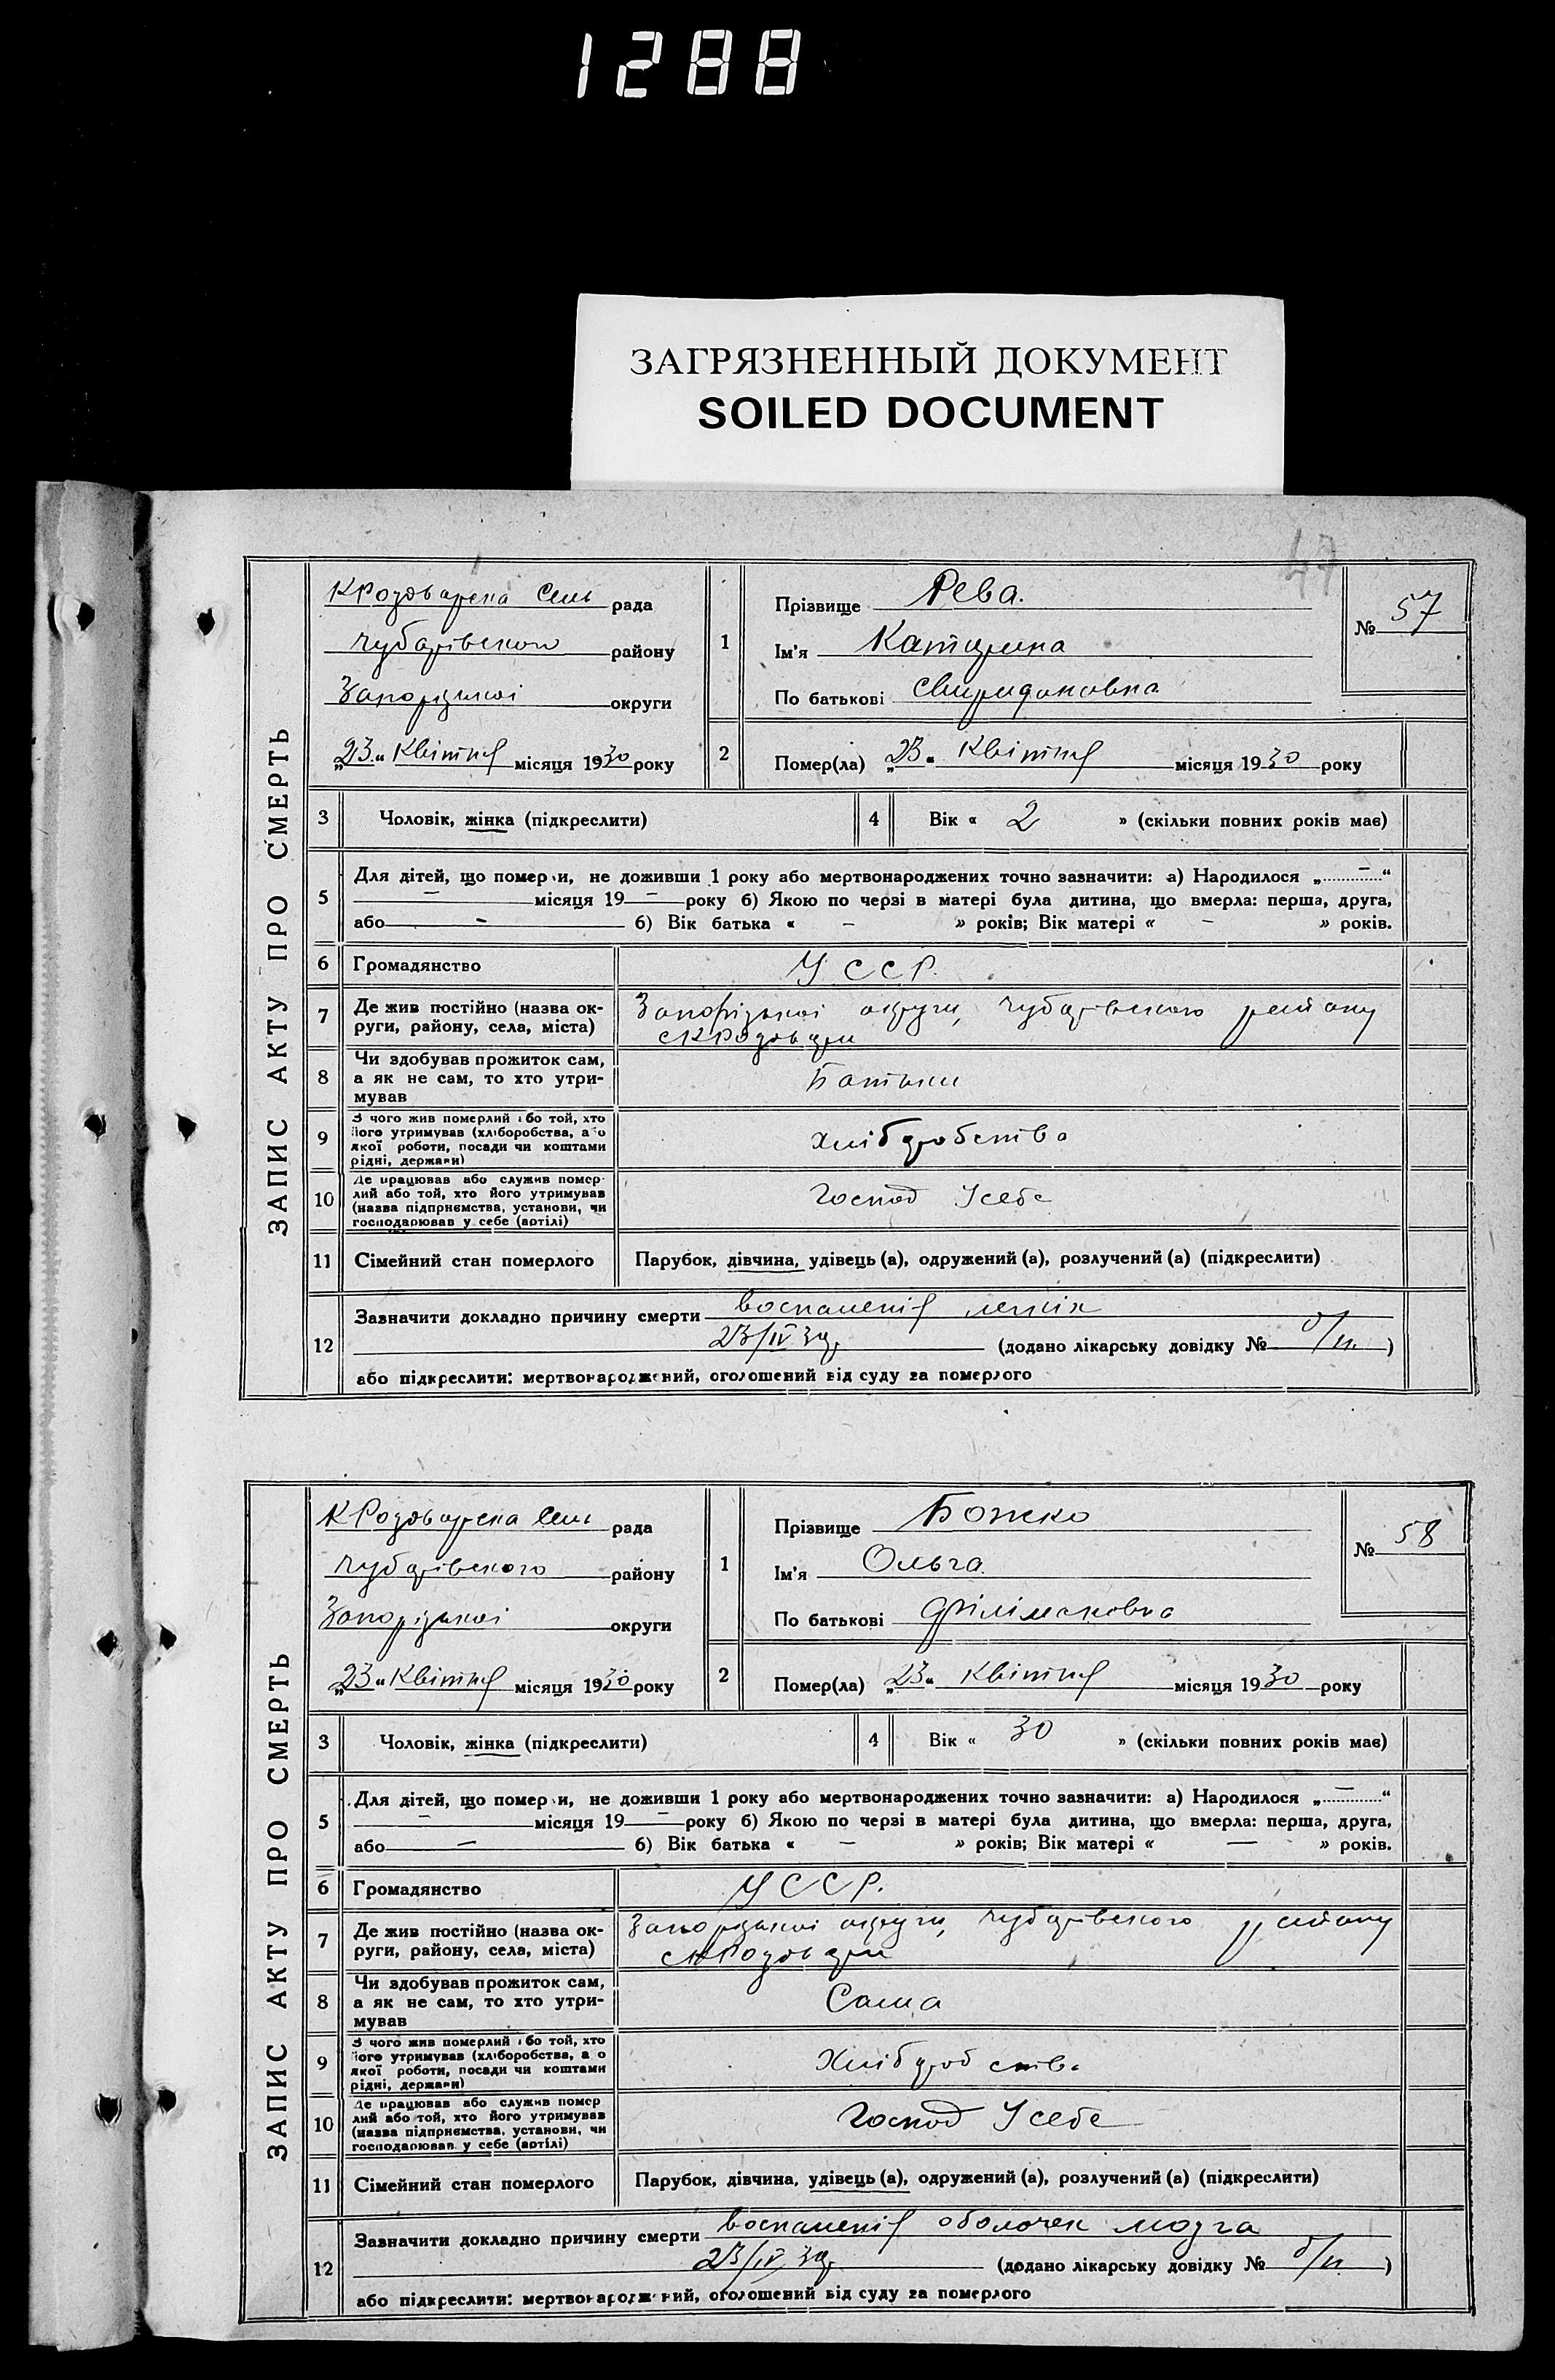 1288
ЗАГРЯЗНЕННЫЙ ДОКУМЕНТ
SOILED DOCUMENT
47
ЗАПИС АКТУ ПРО СМЕРТЬ
рада
Чубарівского району
Запорізькоі округи
„23“ Квітня місяця 1930 року
1 Прізвище Рева.
Ім'я Катерина
По батькові Свиридоновна
№ 57
2 Помер(ла) „23“ Квітня місяця 1930 року
3 Чоловік, жінка (підкреслити)
4 Вік « 2 » (скільки повних років має)
5 Для дітей, що померли, не доживши 1 року або мертвонароджених точно зазначити: а) Народилося „ – “
– місяця 19 – року б) Якою по черзі в матері була дитина, що вмерла: перша, друга,
або – б) Вік батька « – » років; Вік матері « – » років.
6 Громадянство УССР.
7 Де жив постійно (назва ок-
руги, району, села, міста)
Запорізькоі округи, Чубарівского району
8 Чи здобував прожиток сам,
а як не сам, то хто утри-
мував
Батьки
9 З чого жив померлий або той, хто
його утримував (хліборобства, або
якої роботи, посади чи коштами
рідні, держави)
хліборобство
10 Де працював або служив помер-
лий або той, хто його утримував
(назва підприємства, установи, чи
господарював у себе (артілі)
Господ Усебе
11 Сімейний стан померлого Парубок, дівчина, удівець (а), одружений (а), розлучений (а) (підкреслити)
12 Зазначити докладно причину смерти воспаленія легкіх
23/IV 30р (додано лікарську довідку № б/н. )
або підкреслити: мертвонароджений, оголошений від суду за померлого
ЗАПИС АКТУ ПРО СМЕРТЬ
рада
Чубарівского району
Запорізькоі округи
„23“ Квітня місяця 1930 року
1 Прізвище Божко
Ім'я Ольга.
По батькові Філімоновна
№ 58
2 Помер(ла) „23“ Квітня місяця 1930 року
3 Чоловік, жінка (підкреслити)
4 Вік « 30 » (скільки повних років має)
5 Для дітей, що померли, не доживши 1 року або мертвонароджених точно зазначити: а) Народилося „ – “
– місяця 19 – року б) Якою по черзі в матері була дитина, що вмерла: перша, друга,
або – б) Вік батька « – » років; Вік матері « – » років.
6 Громадянство УССР.
7 Де жив постійно (назва ок-
руги, району, села, міста)
Запорізькоі округи, Чубарівского району
8 Чи здобував прожиток сам,
а як не сам, то хто утри-
мував
Сама
9 З чого жив померлий або той, хто
його утримував (хліборобства, або
якої роботи, посади чи коштами
рідні, держави)
Хліборобство
10 Де працював або служив помер
лий або той, хто його утримував
(назва підприємства, установи, чи
господарював у себе (артілі)
Господ Усебе
11 Сімейний стан померлого Парубок, дівчина, удівець (а), одружений (а), розлучений (а) (підкреслити)
12 Зазначити докладно причину смерти воспаленія оболочек мозга
23/IV 30р (додано лікарську довідку № б/н )
або підкреслити: мертвонароджений, оголошений від суду за померлого